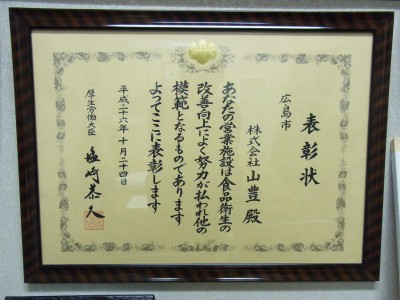 表彰状
広島市
株式会社山豊殿
あなたの営業施設は食品衛生の
改善向上によく努力が払われ他の
模範となるものであります
よってここに表彰します
平成二十六年十月二十四日
厚生労働大臣
塩崎恭久